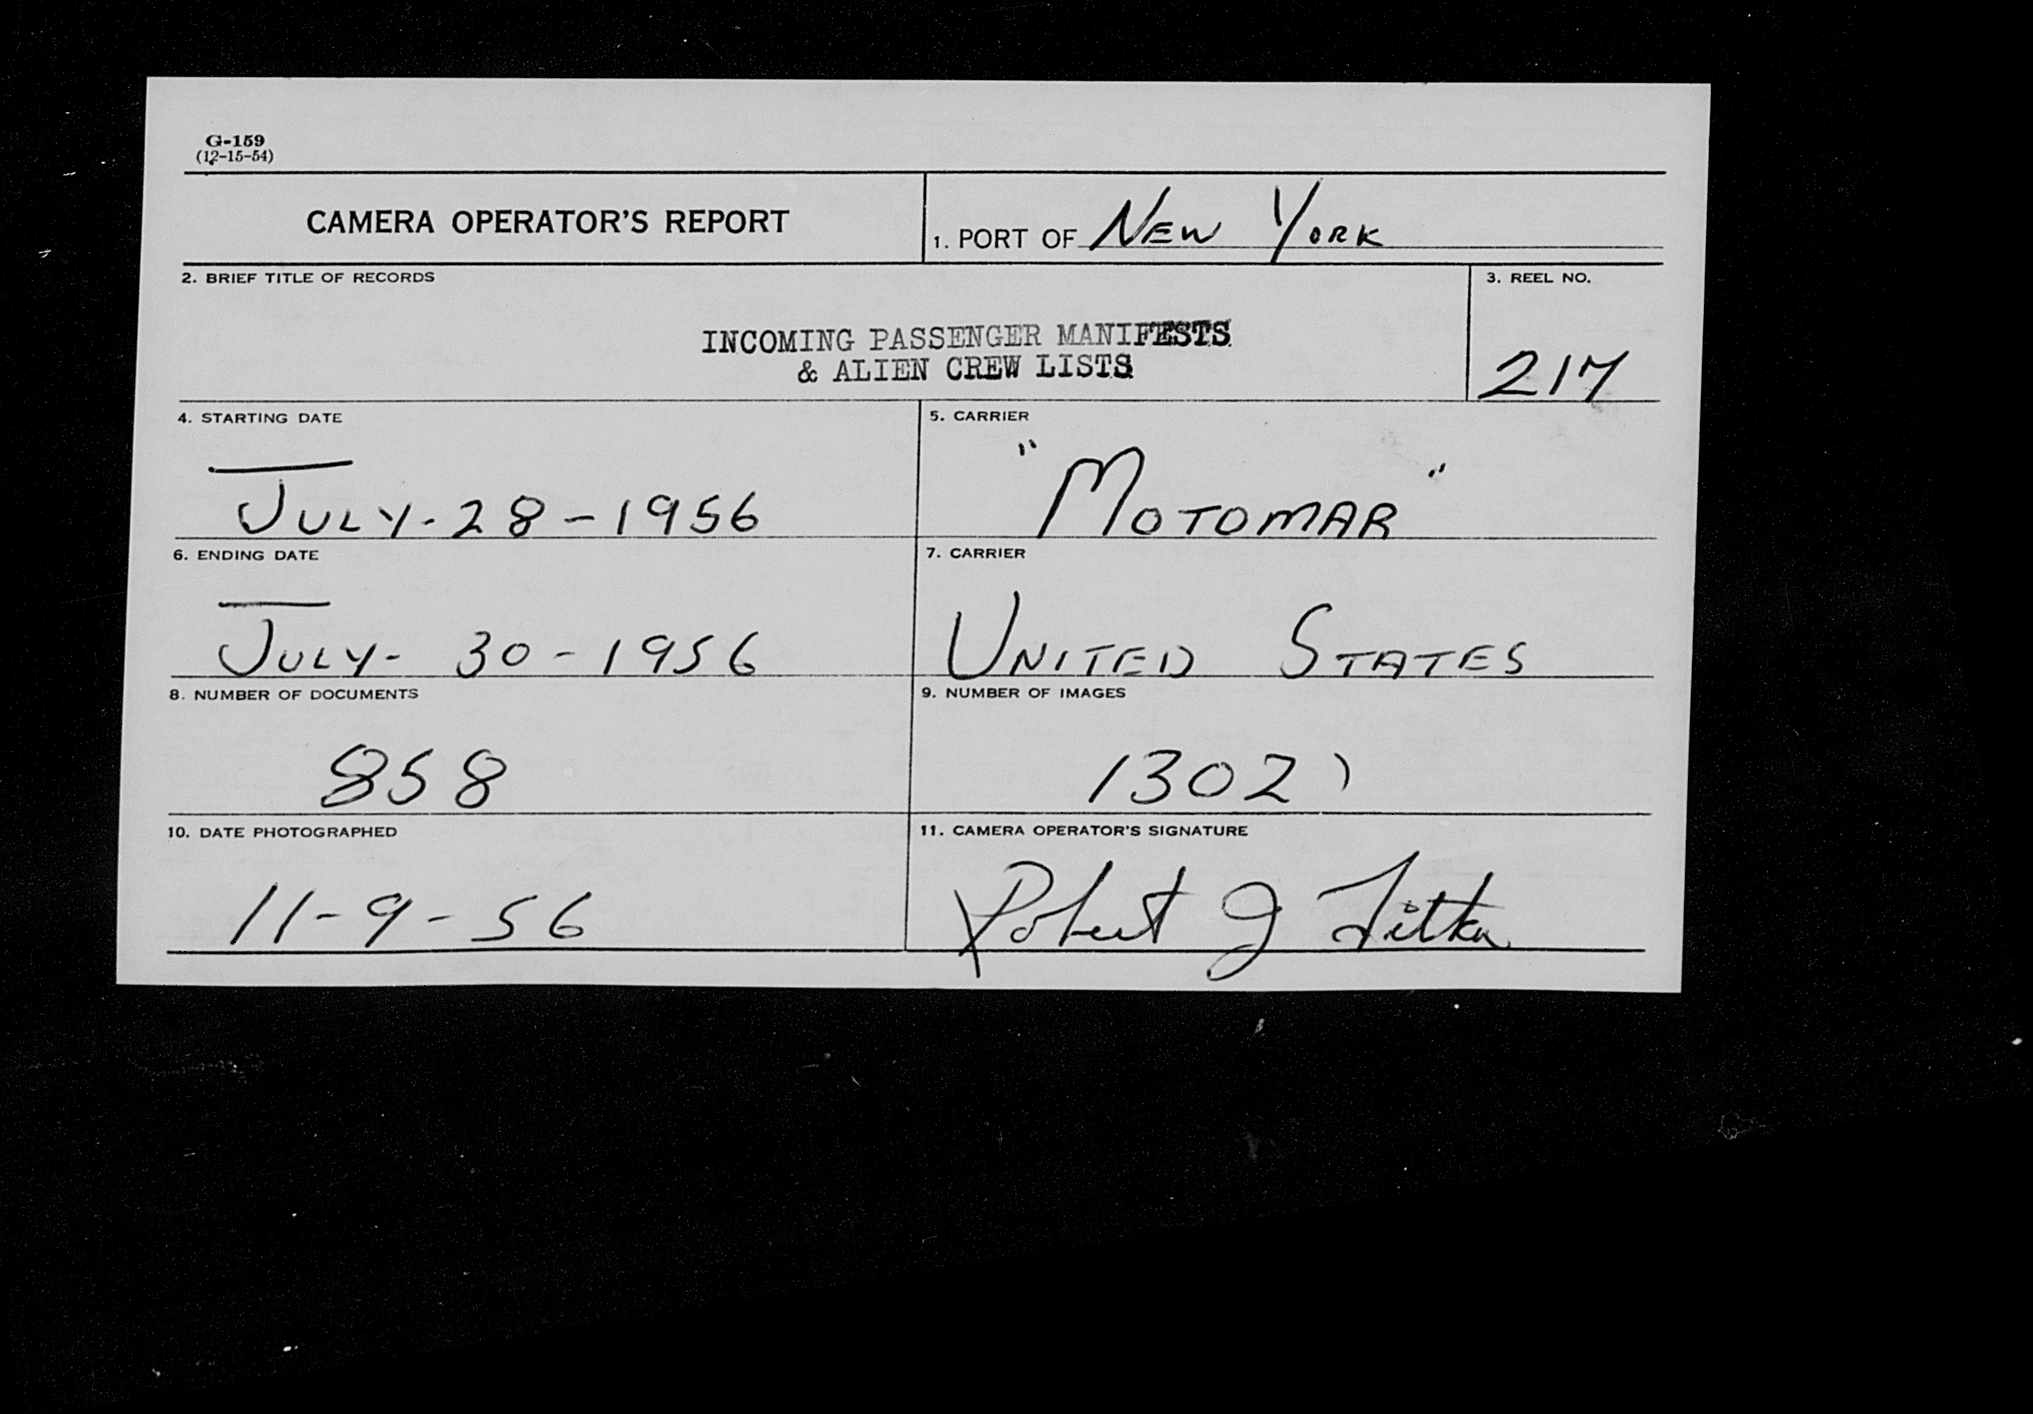 G-159
(12-15-54)
CAMERA OPERATOR'S REPORT
1. PORT OF NEW YORK
2. BRIEF TITLE OF RECORDS
3. REEL NO.
INCOMING PASSENGER MANIFESTS
& ALIEN CREW LISTS
217
4. STARTING DATE
5. CARRIER
JULY-28-1956
"MOTOMAR"
6. ENDING DATE
7. CARRIER
JULY-30-1956
UNITED STATES
8. NUMBER OF DOCUMENTS
9. NUMBER OF IMAGES
858
1302
10. DATE PHOTOGRAPHED
11. CAMERA OPERATOR'S SIGNATURE
11-9-56
Robert J